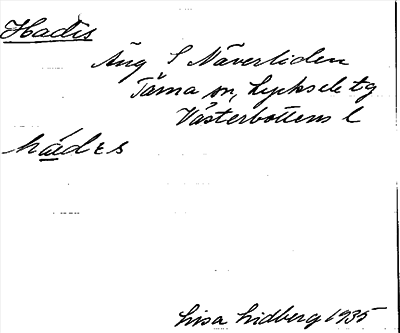 Hadis
Äng S Näverliden
Tärna sn, Lycksele tg
Västerbottens l
hádɛs
Lisa Lidberg 1935